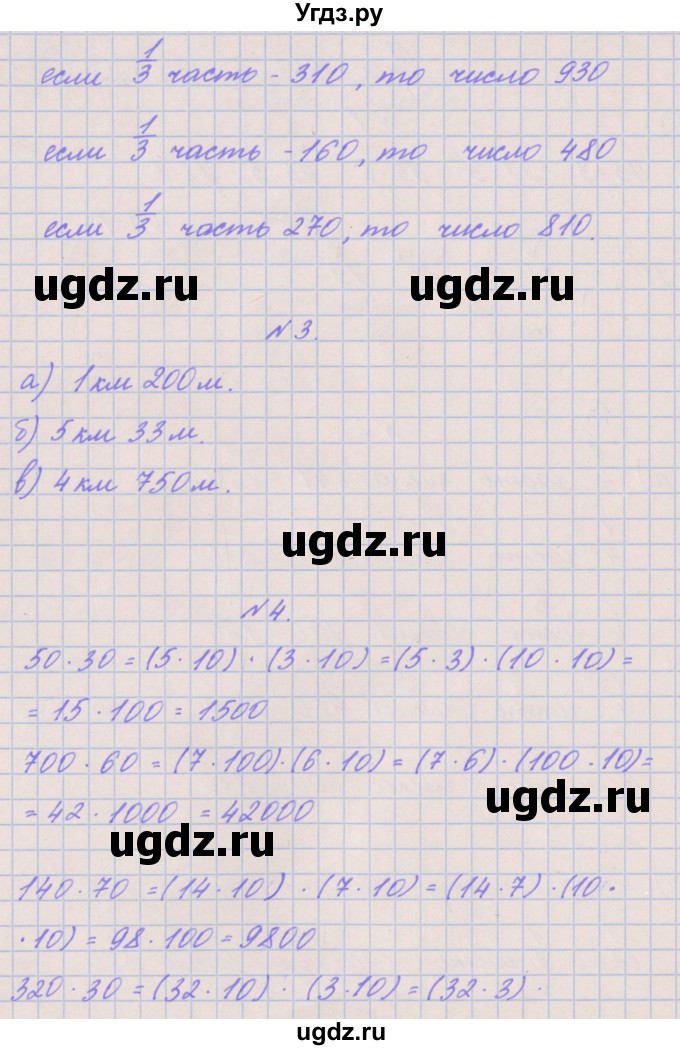 Угдз.ру
если 1/3 часть - 310, то число 930
если 1/3 часть - 160, то число 480
если 1/3 часть 270, то число 810.
ugdz.ru ugdz.ru
№3.
а) 1 км 200 м.
б) 5 км 33 м.
в) 4 км 750 м.
ugdz.ru
№4.
50 · 30 = (5 · 10) · (3 · 10) = (5 · 3) · (10 · 10) =
= 15 · 100 = 1500
700 · 60 = (7 · 100) · (6 · 10) = (7 · 6) · (100 · 10) =
ugdz.ru
= 42 · 1000 = 42000
ugdz.ru
140 · 70 = (14 · 10) · (7 · 10) = (14 · 7) · (10 ·
· 10) = 98 · 100 = 9800
320 · 30 = (32 · 10) · (3 · 10) = (32 · 3) ·
ugdz.ru